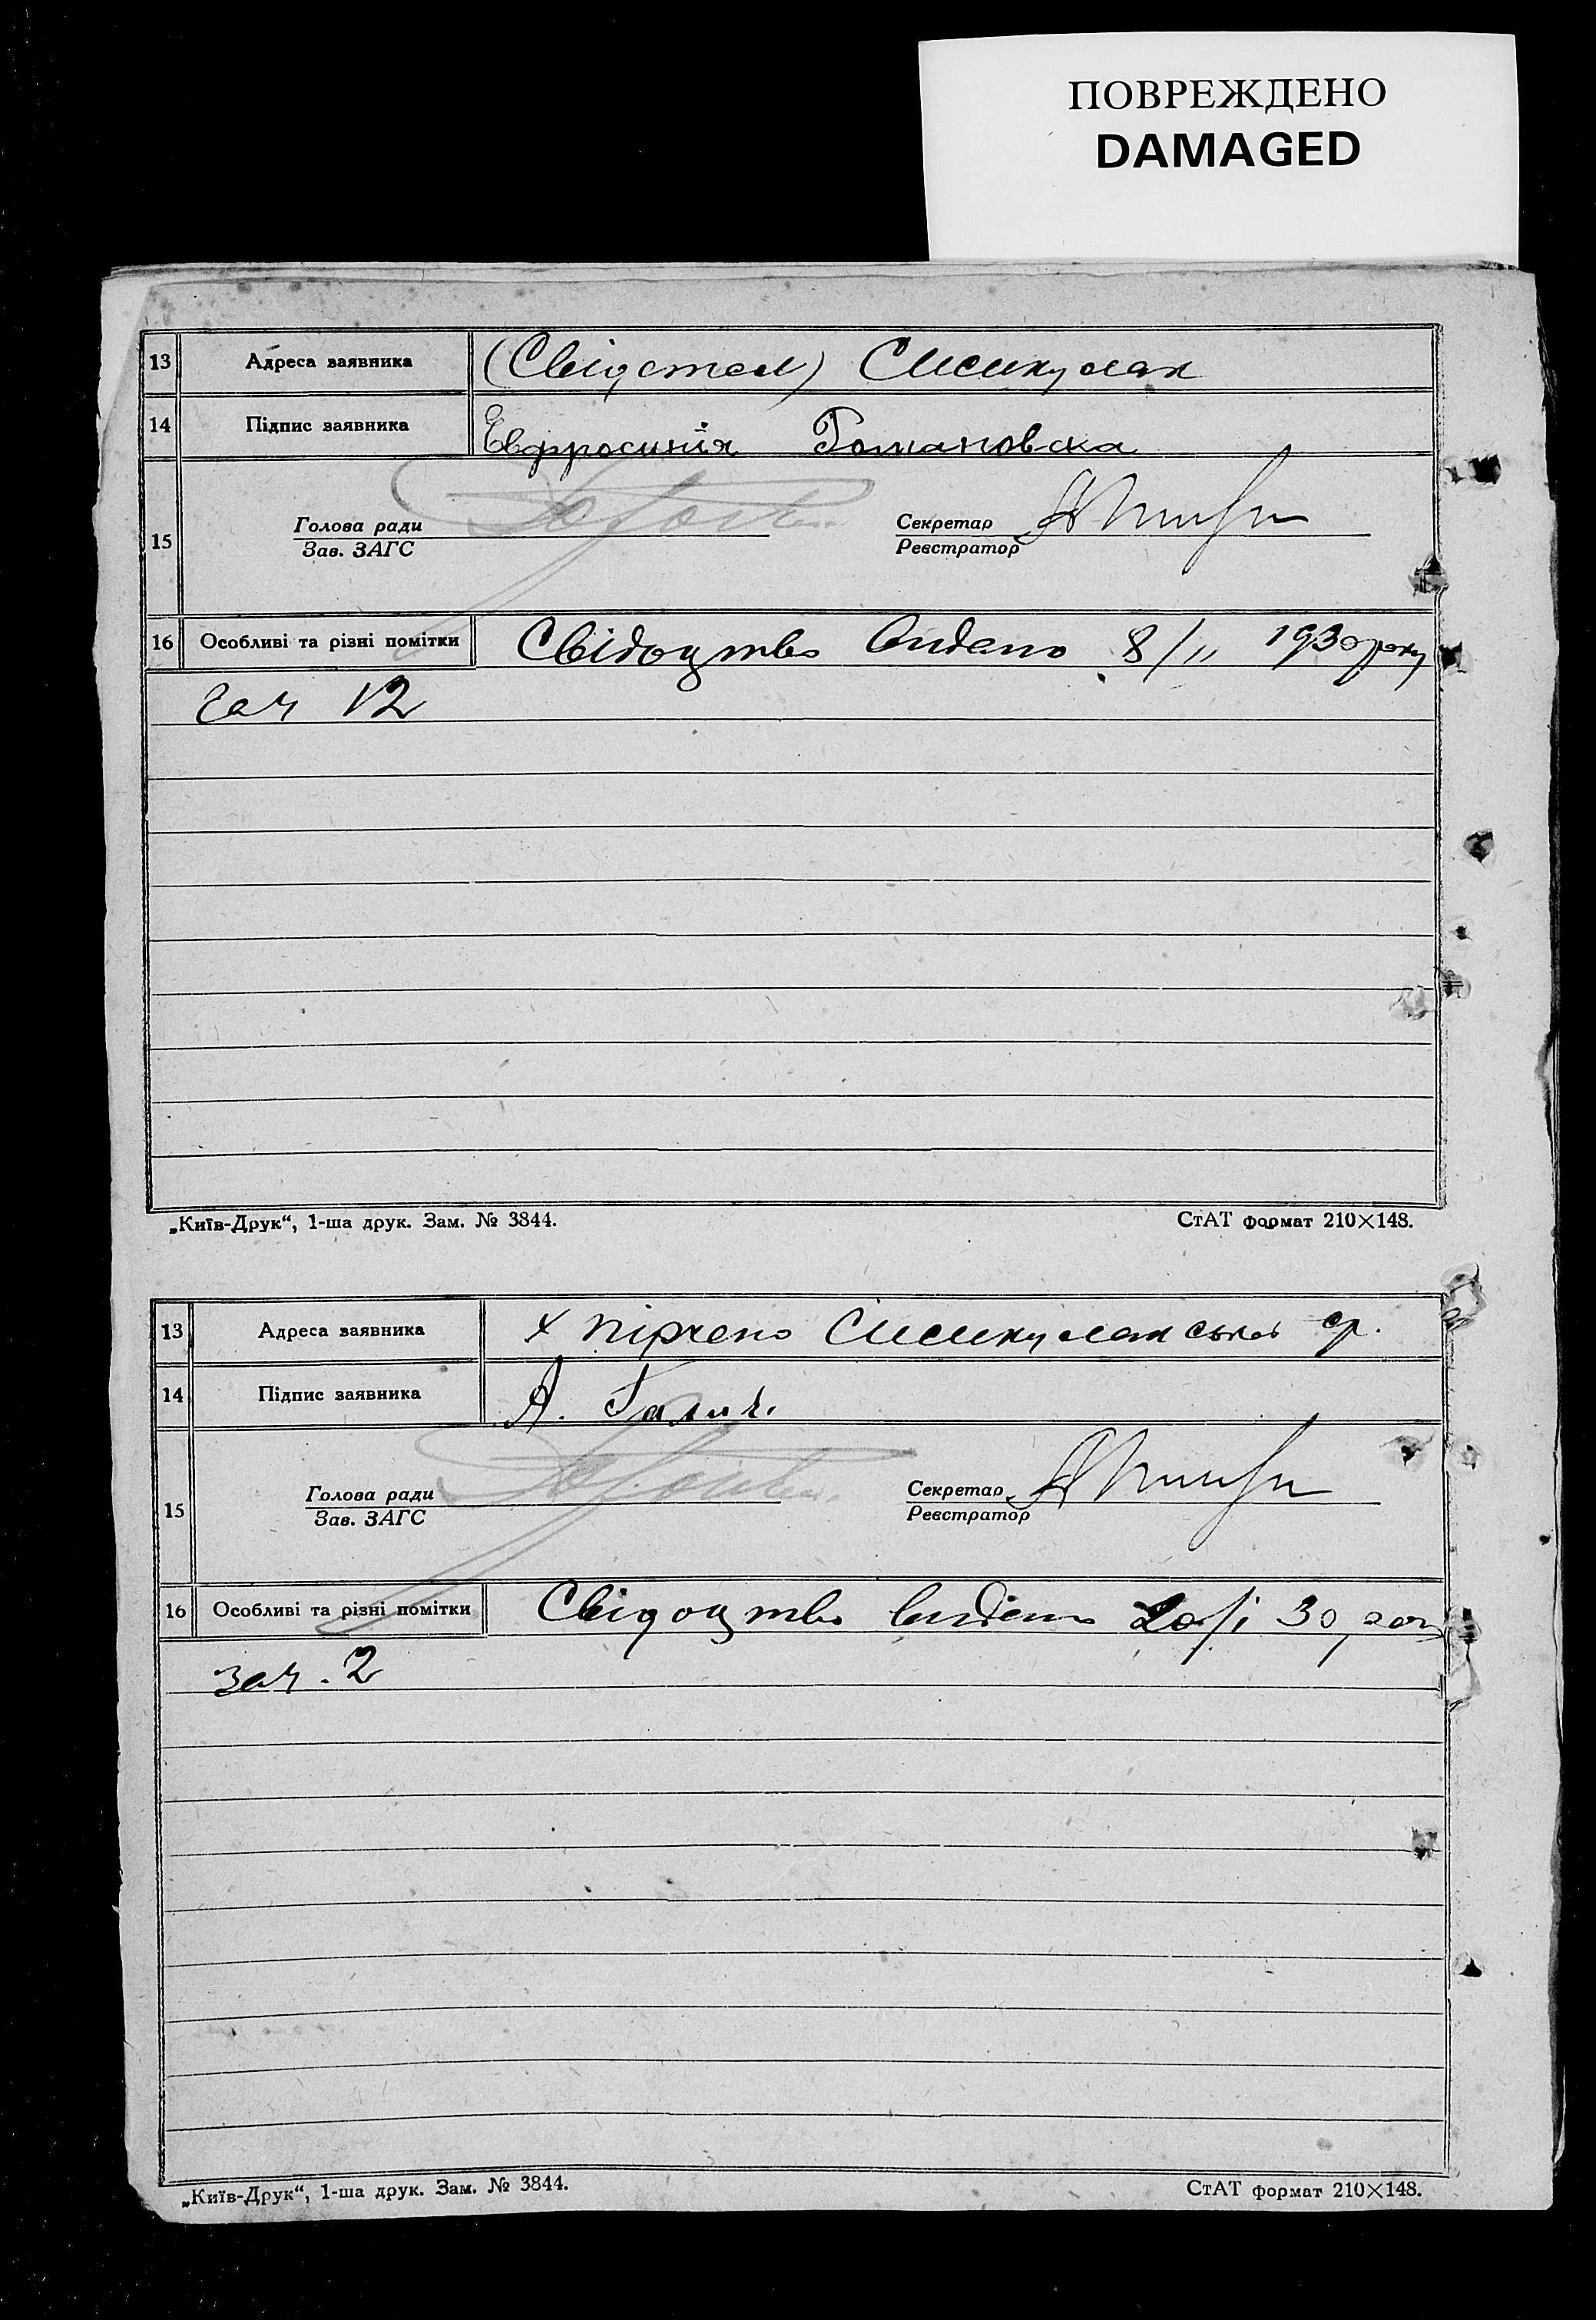 ПОВРЕЖДЕНО
DAMAGED
13 Адреса заявника (Свідетел)
14 Підпис заявника Евфросинія Романовска
15 Голова ради Секретар
Зав. ЗАГС Реєстратор
16 Особливі та різні помітки Свідоцтво видано 8/II 1930 року
зач 12
„Київ-Друк“, 1-ша друк. Зам. № 3844. СтАТ формат 210×148.
13 Адреса заявника х ср.
14 Підпис заявника А.
15 Голова ради Секретар
Зав. ЗАГС Реєстратор
16 Особливі та різні помітки Свідоцтво видано 20/I 30 року
зач. 2
„Київ-Друк“, 1-ша друк. Зам. № 3844. СтАТ формат 210×148.